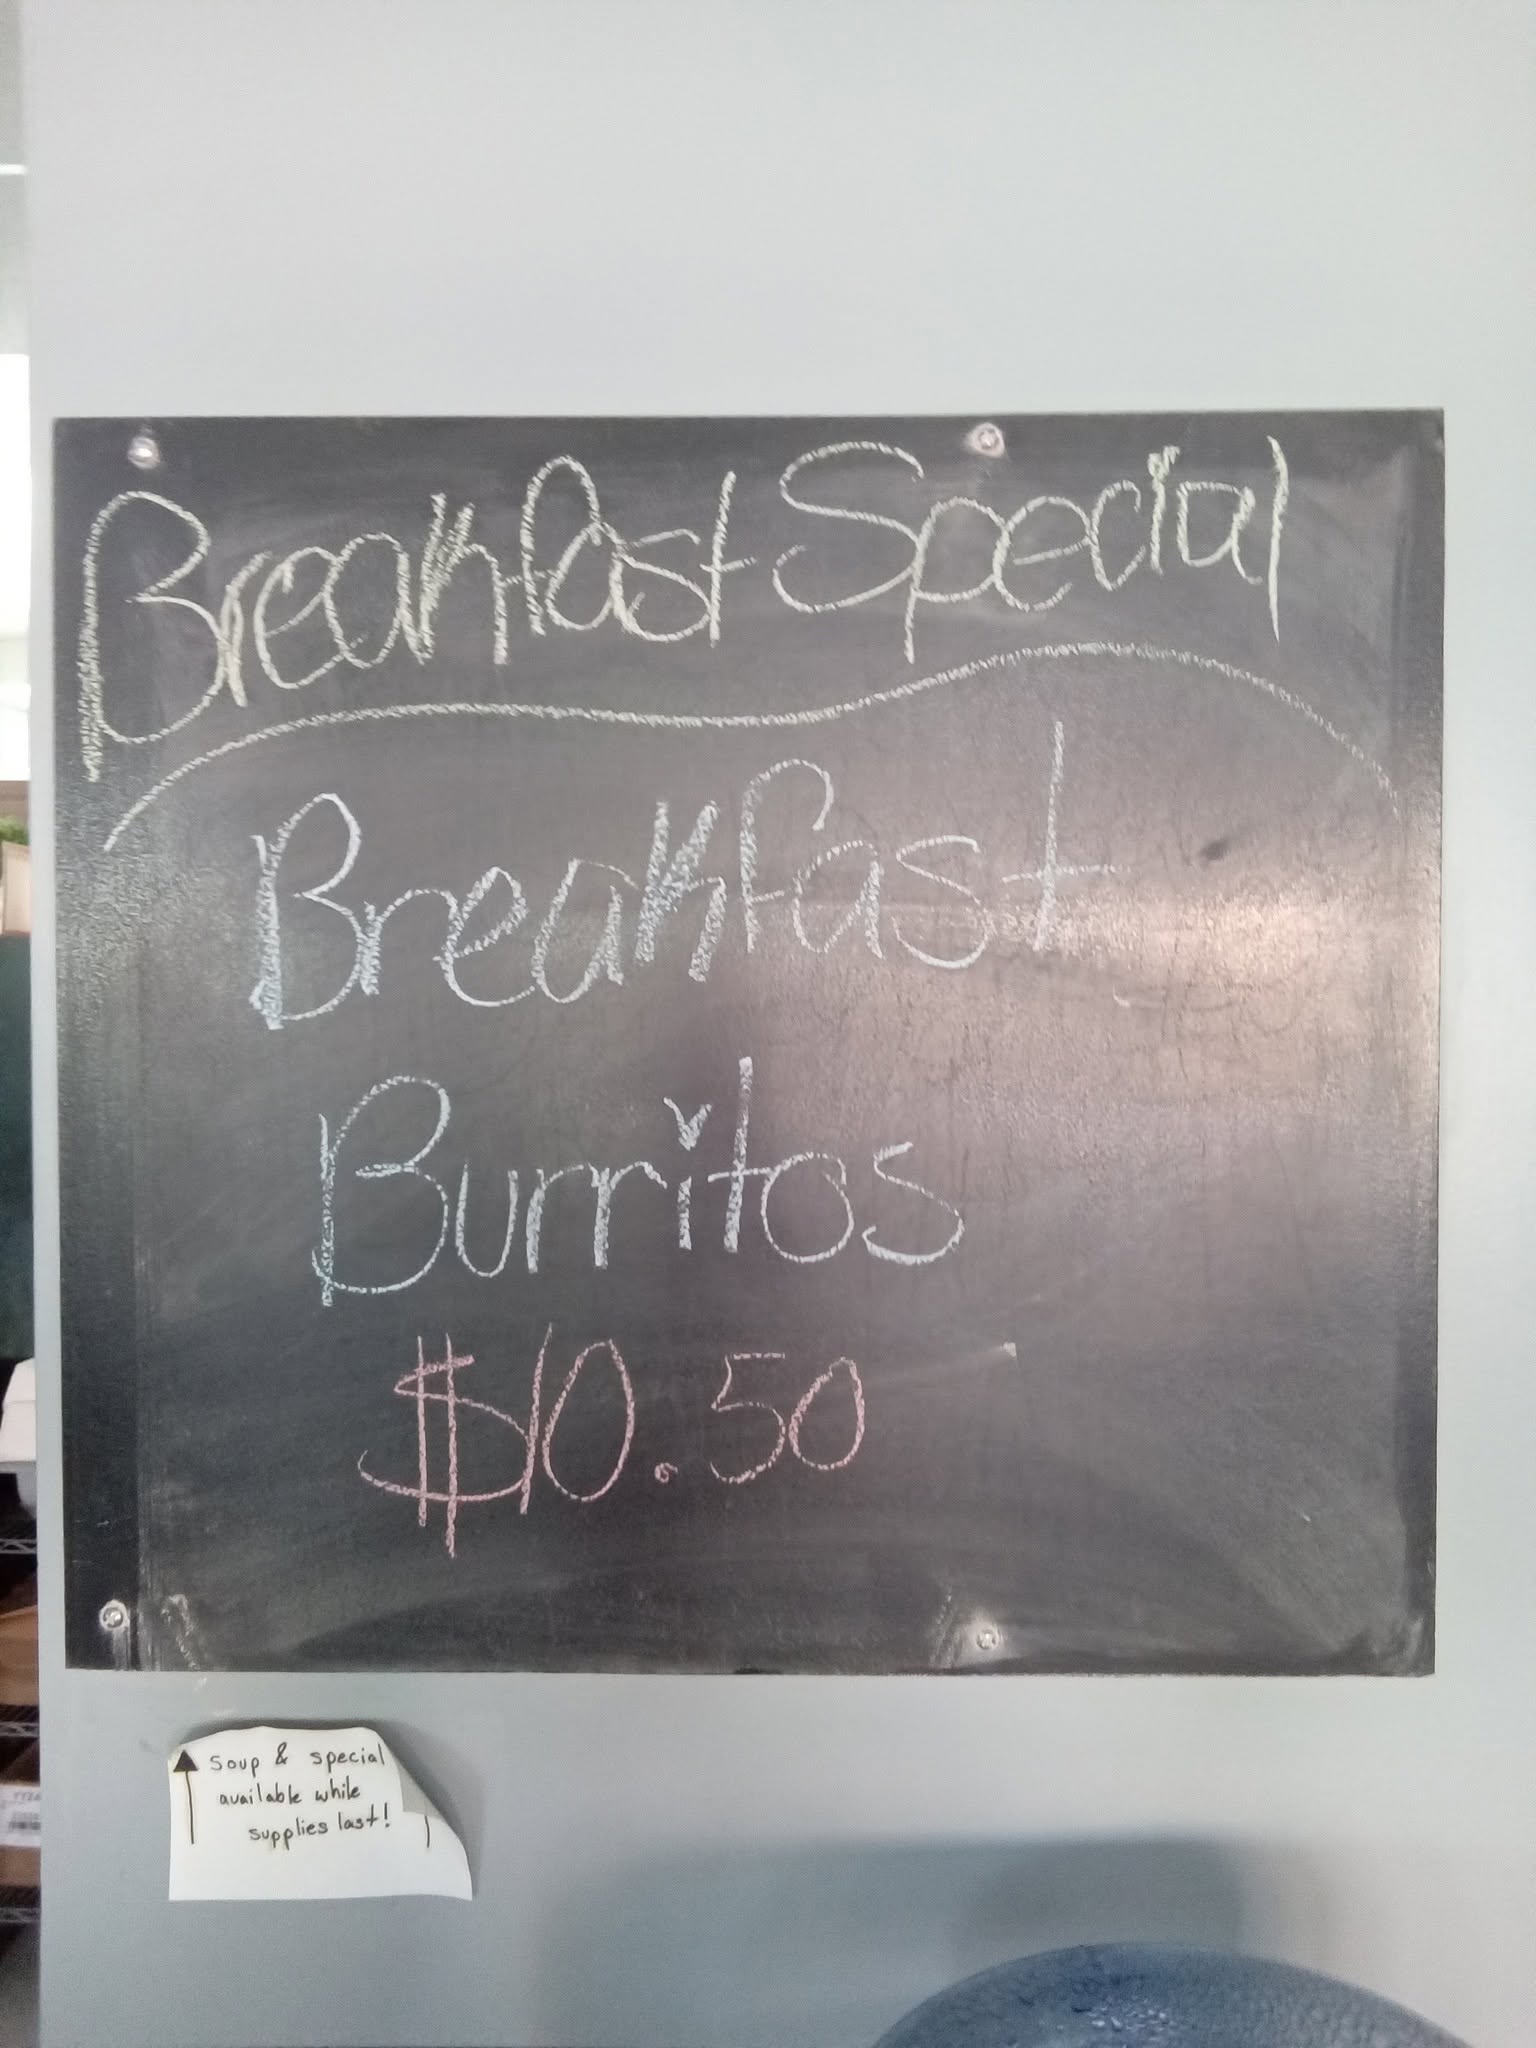 Breakfast Special
Breakfast
Burritos
$10.50
soup & special
available while
supplies last!